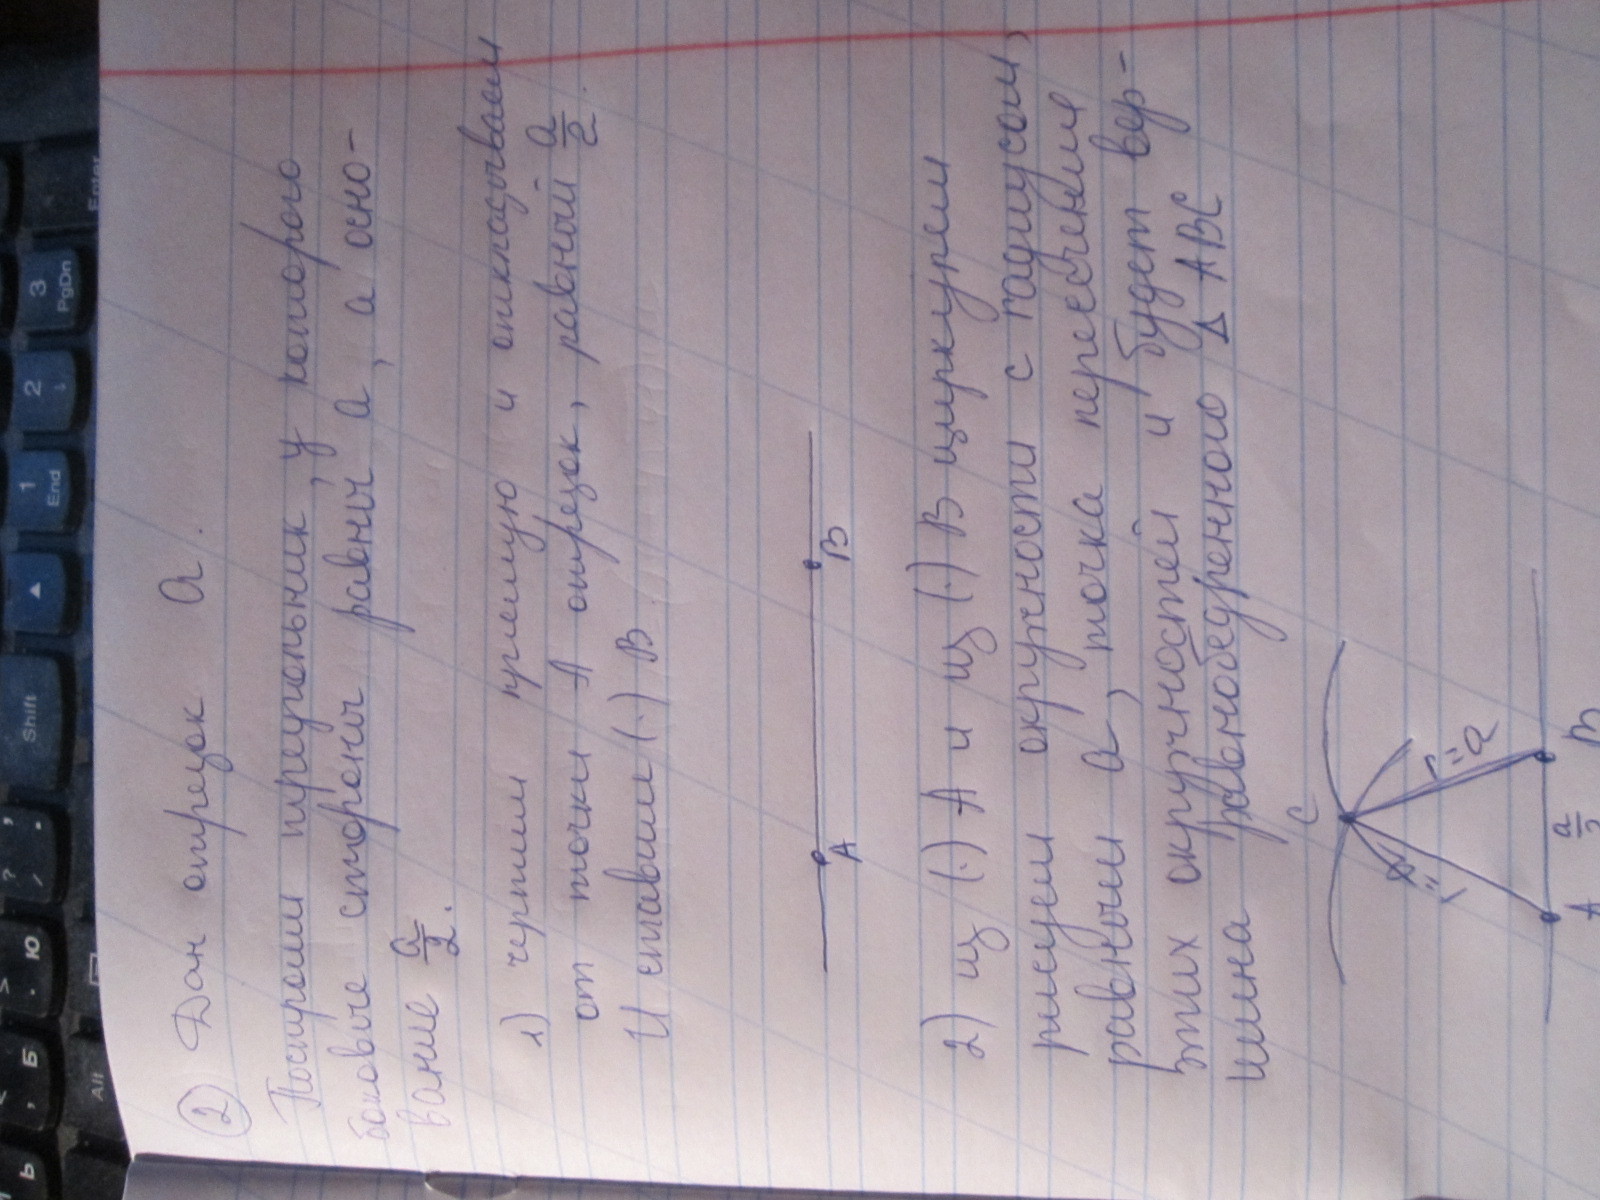 ② Дан отрезок a.
Построим треугольник, у которого
боковые стороны равны a, а осно-
вание a/2.
1) чертим прямую и откладываем
от точки A отрезок, равный a/2.
И ставим (·) B
A B
2) из (·) A и из (·) B циркулем
рисуем окружности с радиусом,
равным a, точка пересечения
этих окружностей и будет вер-
шина равнобедренного Δ ABC
C
r=a
r=
A a/2 B
Shift
1 End
2 ↓
3 PgDn
Enter
Alt
Ь
, Б
> . Ю
? ,